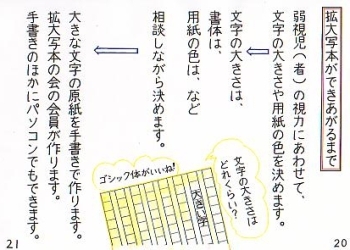 拡大写本ができあがるまで
弱視児(者)の視力にあわせて、
文字の大きさや用紙の色を決めます。
文字の大きさは、
書体は、
用紙の色は、など
相談しながら決めます。
大きな文字の原紙を手書きで作ります。
拡大写本の会の会員が作ります。
手書きのほかにパソコンでもできます。
文字の大きさは
どれくらい?
ゴシック体がいいね!
大きい字
20
21